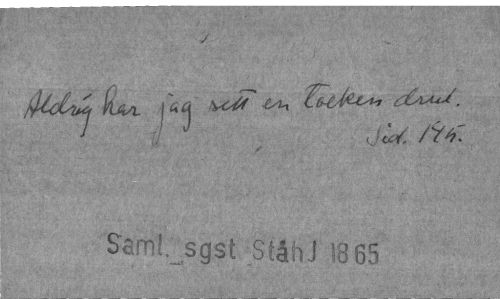 Aldrig har jag sett en tocken drul.
Sid. 145.
Saml._sgst StåhJ 1865